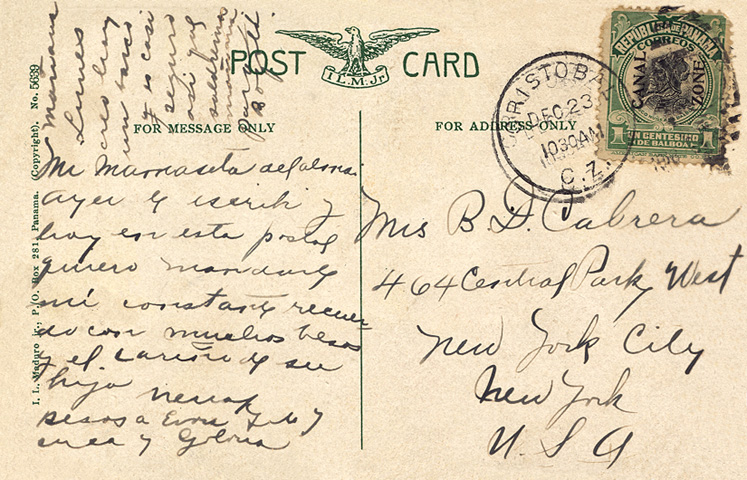 POST CARD
I.L.M.Jr.
FOR MESSAGE ONLY
FOR ADDRESS ONLY
I. L. Maduro Jr., P. O. Box 281, Panama. (Copyright). No. 5639
REPUBLICA DE PANAMA
CORREOS
CANAL ZONE
1 UN CENTESIMO 1
DE BALBOA
CRISTOBAL
DEC 23
1030AM
C.Z.
Mañana
Lunes
creo hay
un barco
y es casi
seguro
Mi Mamaseta del alma
ayer le escribi y
hoy en esta postal
quiero mandarle
mi constante recuer
do con muchos besos
y el cariño de su
hijo
Besos a
y Gloria
Mrs B. D. Cabrera
464 Central Park West
New York City
New York
U. S A